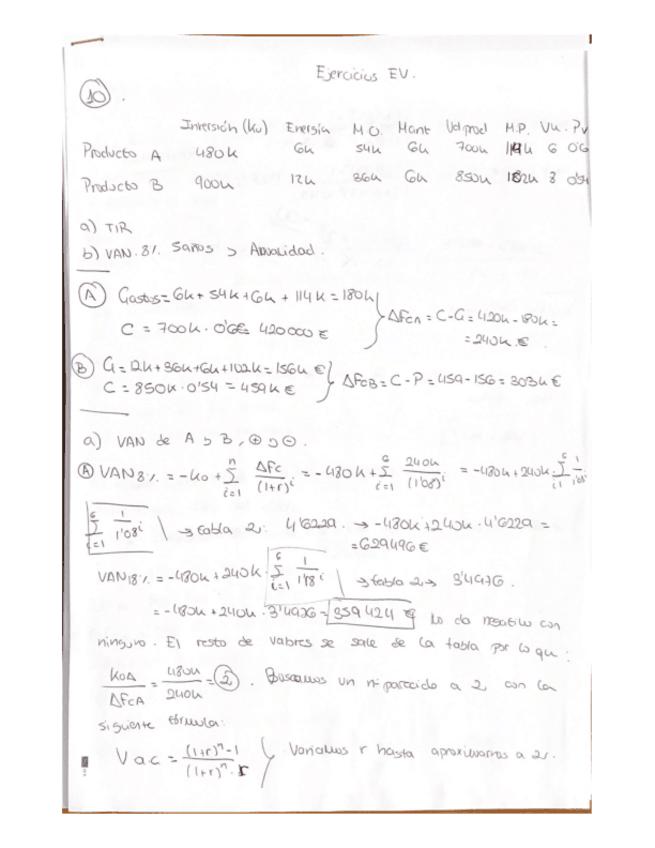 Ejercicios EV.
10.
Inversión (k0) Energía M.O. Mant Ud prod M.P. Vu. Pv
Producto A 480k 6k 54k 6k 700k 114k 6 0'6
Producto B 900k 12k 36k 6k 850k 102k 8 0'54
a) TIR
b) VAN. 8%. 5años → Anualidad.
A Gastos = 6k + 54k + 6k + 114k = 180k
C = 700k · 0'6€ = 420000 €
ΔFCA = C-G = 420k - 180k =
= 240k €
B G = 12k + 36k + 6k + 102k = 156k €
C = 850k · 0'54 = 459k €
ΔFCB = C - P = 459 - 156 = 303k €
a) VAN de A y B, ⊕ y ⊖.
A VAN 8% = -k0 + n Σ i=1 ΔFc / (1+r)^i = -480k + 6 Σ i=1 240k / (1'08)^i = -480k + 240k · 6 Σ i=1 1 / 1'08^i
6 Σ i=1 1 / 1'08^i → tabla 2: 4'6229. → -480k + 240k · 4'6229 =
= 629496 €
VAN 18% = -480k + 240k · 6 Σ i=1 1 / 1'18^i → tabla 2 → 3'4976.
= -480k + 240k · 3'4976 = 359424 € No da negativo con
ninguno. El resto de valores se sale de la tabla por lo que:
K0A / ΔFCA = 480k / 240k = 2. Buscamos un nº parecido a 2 con la
siguiente fórmula:
Vac = (1+r)^n - 1 / (1+r)^n · r } Variamos r hasta aproximarnos a 2.